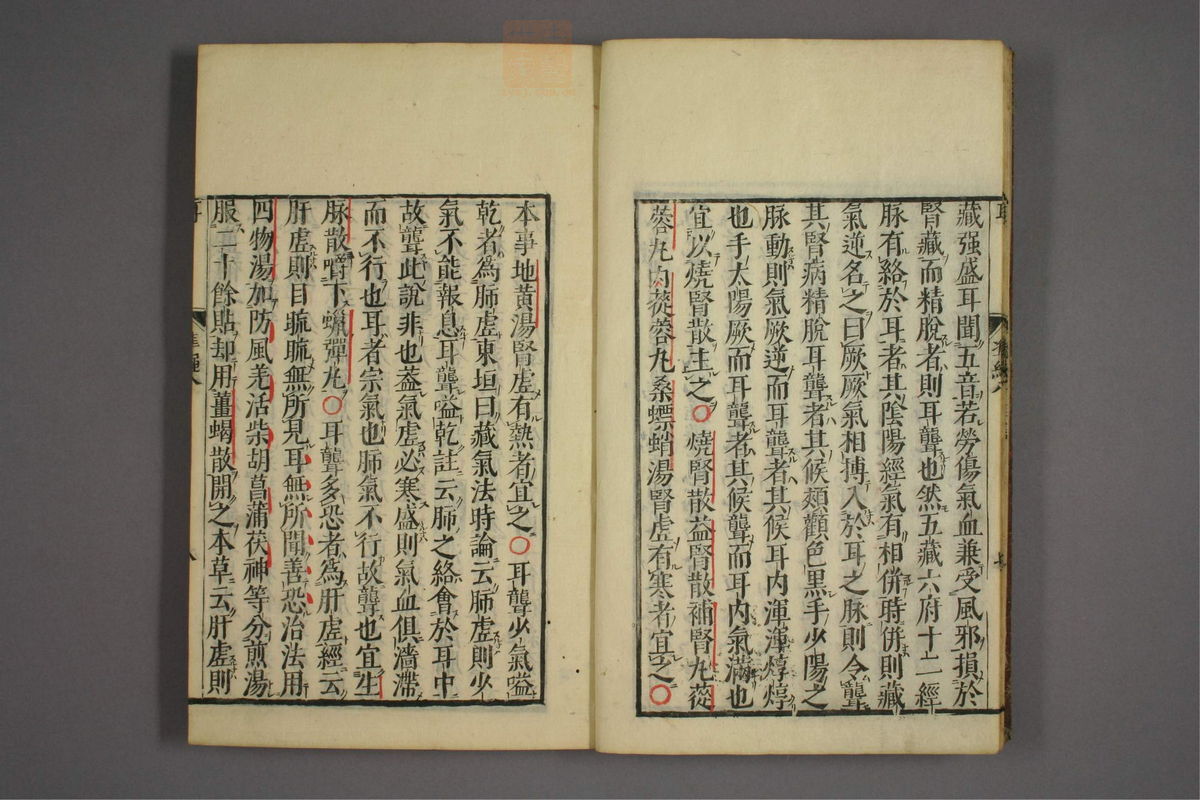 藏强盛耳聞五音若勞傷氣血兼受風邪損於
腎藏而精脫者則耳聾也然五藏六府十二經
脉有絡於耳者其陰陽經氣有相併時併則藏
氣逆名之曰厥厥氣相搏入於耳之脉則令聾
其腎病精脫耳聾者其候頰顴色黑手少陽之
脉動則氣厥逆而耳聾者其候耳内渾渾焞焞
也手太陽厥而耳聾者其候聾而耳内氣滿也
宜以燒腎散主之○燒腎散益腎散補腎丸蓯
蓉丸肉蓯蓉丸桑螵蛸湯腎虛有寒者宜之○
本事地黃湯腎虛有熱者宜之○耳聾少氣嗌
乾者爲肺虛東垣曰藏氣法時論云肺虛則少
氣不能報息耳聾嗌乾註云肺之絡會於耳中
故聾此說非也蓋氣虛必寒盛則氣血俱濇滯
而不行也耳者宗氣也肺氣不行故聾也宜生
脉散嚼下蠟彈丸○耳聾多恐者爲肝虛經云
肝虛則目䀮䀮無所見耳無所聞善恐治法用
四物湯加防風羌活柴胡菖蒲茯神等分煎湯
服二十餘貼却用薑蝎散開之本草云肝虛則